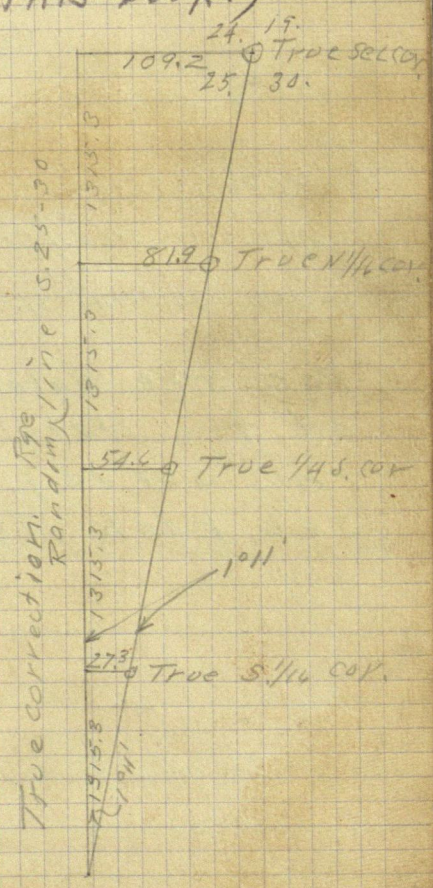 24. 19.
109.2 True sec cor
25. 30.
1315.3
81.9 True N 1/16 cor.
1315.3
54.6 True 1/4 S. cor
1315.3
1°11'
27.3 True S. 1/16 cor.
1315.3
1°11'
True Correction. Rge
Random Line S. 25-30